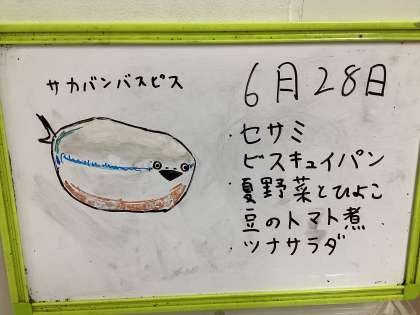 サカバンバスピス
6月28日
・セサミ
ビスキュイパン
・夏野菜とひよこ
豆のトマト煮
・ツナサラダ